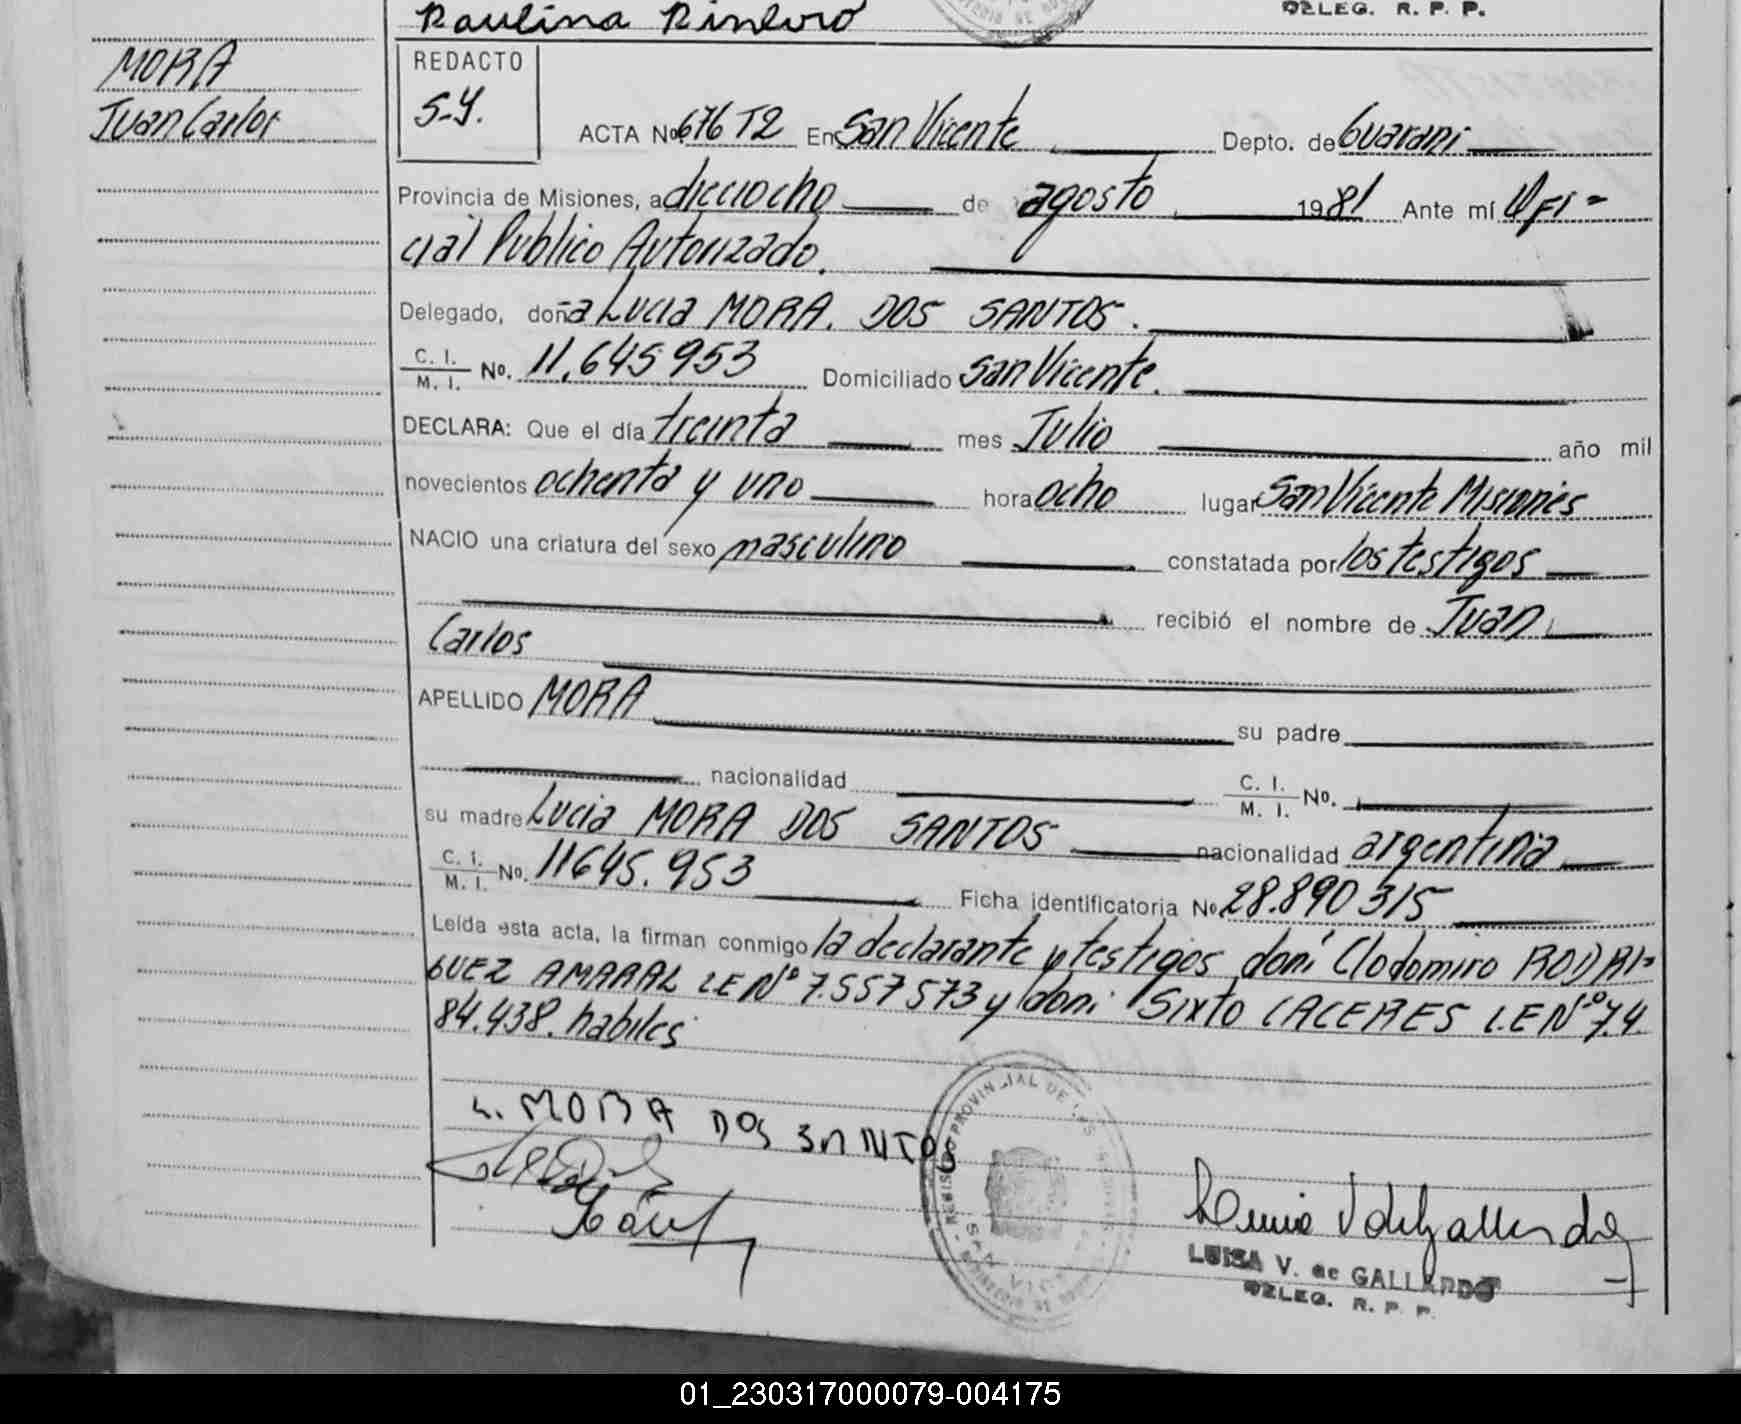 Paulina Rinlvro
DELEG. R. P. P.
MORA
Juan Carlos
REDACTO
S-Y.
ACTA No. 676 T2 En San Vicente Depto. de Guarani
Provincia de Misiones, a dieciocho de agosto 1981 Ante mí Ofi-
cial Publico Autorizado.
Delegado, doña Lucia MORA. DOS SANTOS.
C. I. / M. I. No. 11.645.953 Domiciliado San Vicente.
DECLARA: Que el día treinta mes Julio año mil
novecientos ochenta y uno hora ocho lugar San Vicente Misiones
NACIO una criatura del sexo masculino constatada por los testigos
recibió el nombre de Juan
Carlos
APELLIDO MORA su padre
nacionalidad C. I. / M. I. No.
su madre Lucia MORA DOS SANTOS nacionalidad argentina
C. I. / M. I. No. 11645.953 Ficha identificatoria No. 28.890 315
Leída esta acta, la firman conmigo la declarante y testigos don: Clodomiro RODRI-
GUEZ AMARAL LE Nº 7.557573 y don: Sixto CACERES L.E Nº 7.4
84.438. habiles
L. MORA DOS SANTOS
LUISA V. de GALLARDO
DELEG. R. P. P.
01_230317000079-004175